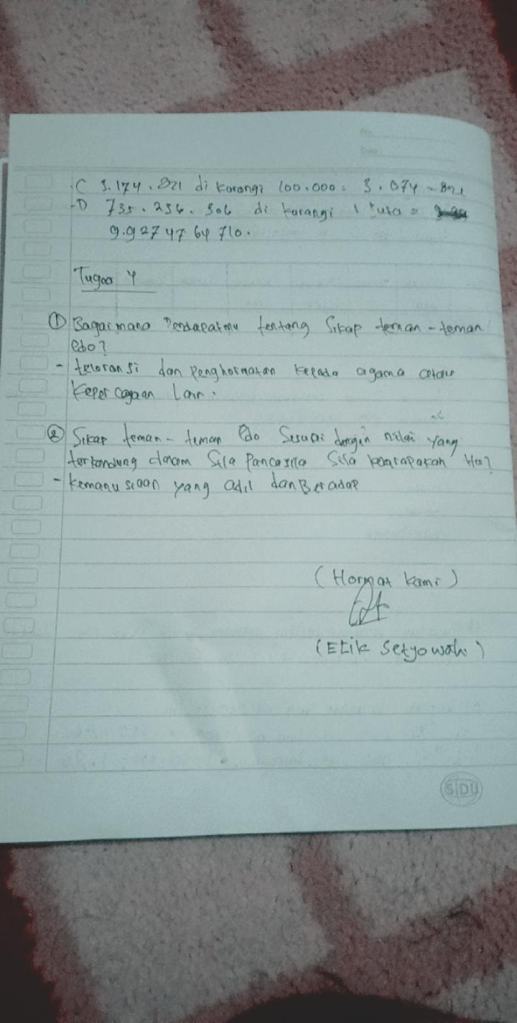 C 3.174.821 di kurangi 100.000 = 3.074.821
D 735.236.306 di kurangi 1 juta =
9.927 47 64 710.
Tugas 4
① Bagaimana Pendapatmu tentang Sikap teman-teman
edo?
- toloransi dan Penghormatan kepada agama atau
keper cayaan Lain.
② Sikap teman-teman edo Sesuai dengin nilai yang
terkandung dalam Sila Pancasila Sila
- kemanusiaan yang adil dan Beradap
(Hormat kami)
(Etik Setyowati)
SIDU